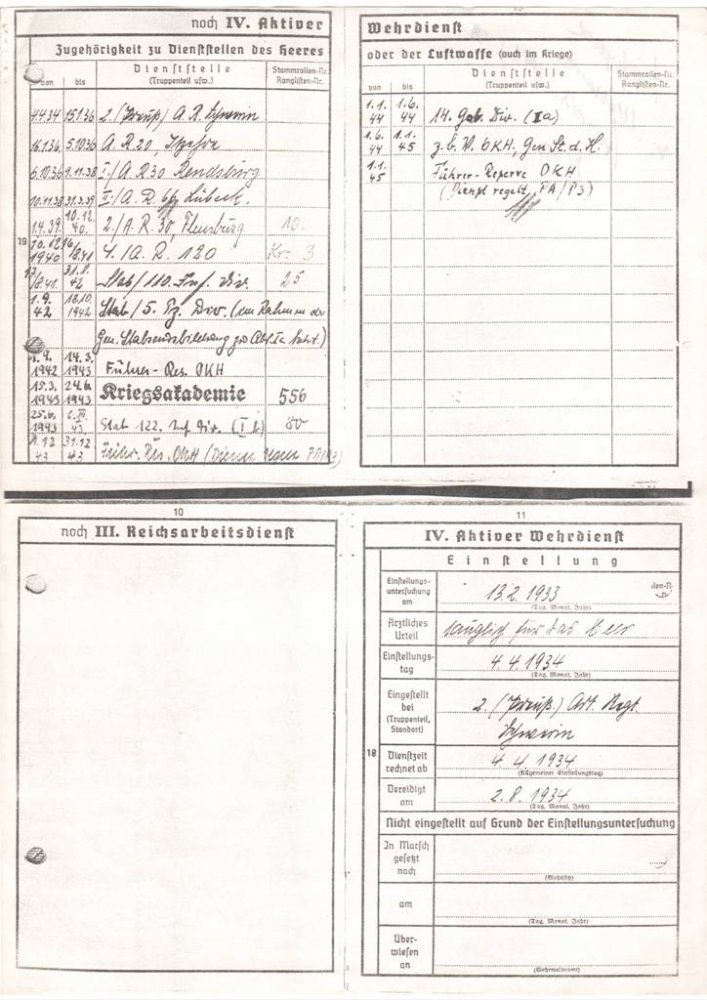 noch IV. Aktiver
Zugehörigkeit zu Dienststellen des Heeres
von
bis
Dienststelle
(Truppenteil usw.)
Stammrollen-Nr.
Ranglisten-Nr.
4.4.34 15.1.36 2./(Preuß.) A.R. Schwerin
16.1.36 5.10.36 A.R. 20, Itzehoe
6.10.36 9.11.38 I./A.R. 30 Rendsburg
10.11.38 31.3.39 A.R. Lübeck.
1.4.39. 10.12.40. 2./A.R. 30, Flensburg 10.
19
1940 4./A.R. 120 3
/8.41. 31.8.42 Stab/110. Inf. Div. 25
1.9.42 18.10.1942 Stab/5. Pz. Div. (im Rahmen der
Gen. Stabsausbildung zur Abt. Ia)
1942 14.3.1943 Führer-Res. OKH
15.3.1943 24.6.1943 Kriegsakademie 556
25.6.1943 Stab 122. Inf. Div. (Ib) 80
1.12.43 31.12.43 Führ. Res. OKH
13
Wehrdienst
oder der Luftwaffe (auch im Kriege)
von
bis
Dienststelle
(Truppenteil usw.)
Stammrollen-Nr.
Ranglisten-Nr.
1.1.44 1.6.44 14. Div. (Ia)
1.6.44 1.1.45 z.b.V. OKH, Gen St. d. H.
1.1.45 Führer-Reserve OKH
(Dienst regelt PA/P3)
10
noch III. Reichsarbeitsdienst
11
IV. Aktiver Wehrdienst
Einstellung
Einstellungs-
untersuchung
am
13.2.1933
(Tag, Monat, Jahr)
Ärztliches
Urteil
tauglich für das Heer
Einstellungs-
tag
4.4.1934
(Tag, Monat, Jahr)
Eingestellt
bei
(Truppenteil,
Standort)
2. (Preuß.) Art. Regt.
Schwerin
18
Dienstzeit
rechnet ab
4.4.1934
(Allgemeiner Einstellungstag)
Vereidigt
am
2.8.1934
(Tag, Monat, Jahr)
Nicht eingestellt auf Grund der Einstellungsuntersuchung
In Marsch
gesetzt
nach
(Wohnsitz)
am
(Tag, Monat, Jahr)
Über-
wiesen
an
(Wehrmeldeamt)